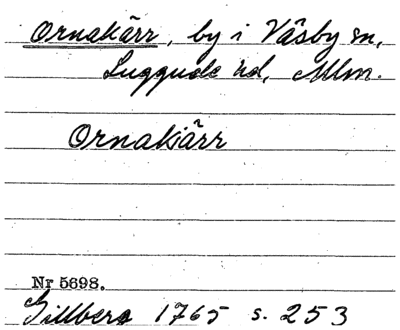 Ornakärr, by i Väsby sn,
Luggude hd, Mlm.
Ornakiärr
Nr 5698.
Gillberg 1765 s. 253